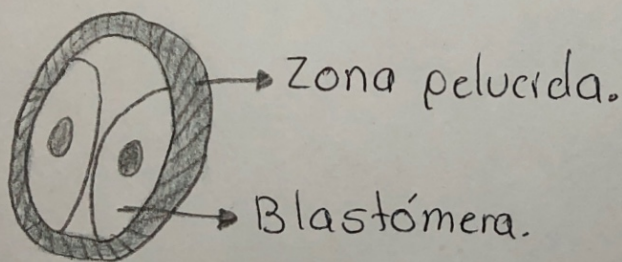 Zona pelucida.
Blastómera.